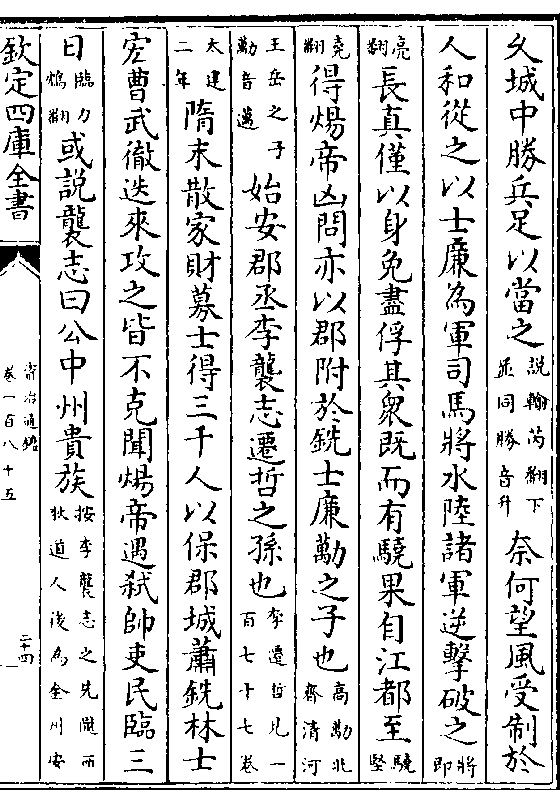 久城中勝兵足以當之說輸芮翻下並同勝音升奈何望風受制於
人和從之以士廉為軍司馬將水陸諸軍逆擊破之將即
亮翻長真僅以身免盡俘其衆既而有驍果自江都至驍堅
堯翻得煬帝凶問亦以郡附於銑士廉勱之子也高勱北齊清河
王岳之子勱音邁始安郡丞李襲志遷哲之孫也李遷哲見一百七十七卷
太建二年隋末散家財募士得三千人以保郡城蕭銑林士
宏曹武徹迭來攻之皆不克聞煬帝遇弑帥吏民臨三
日臨力鴆翻或說襲志曰公中州貴族按李襲志之先隴西狄道人後為金州安
欽定四庫全書
資治通鑑
卷一百八十五
二十四